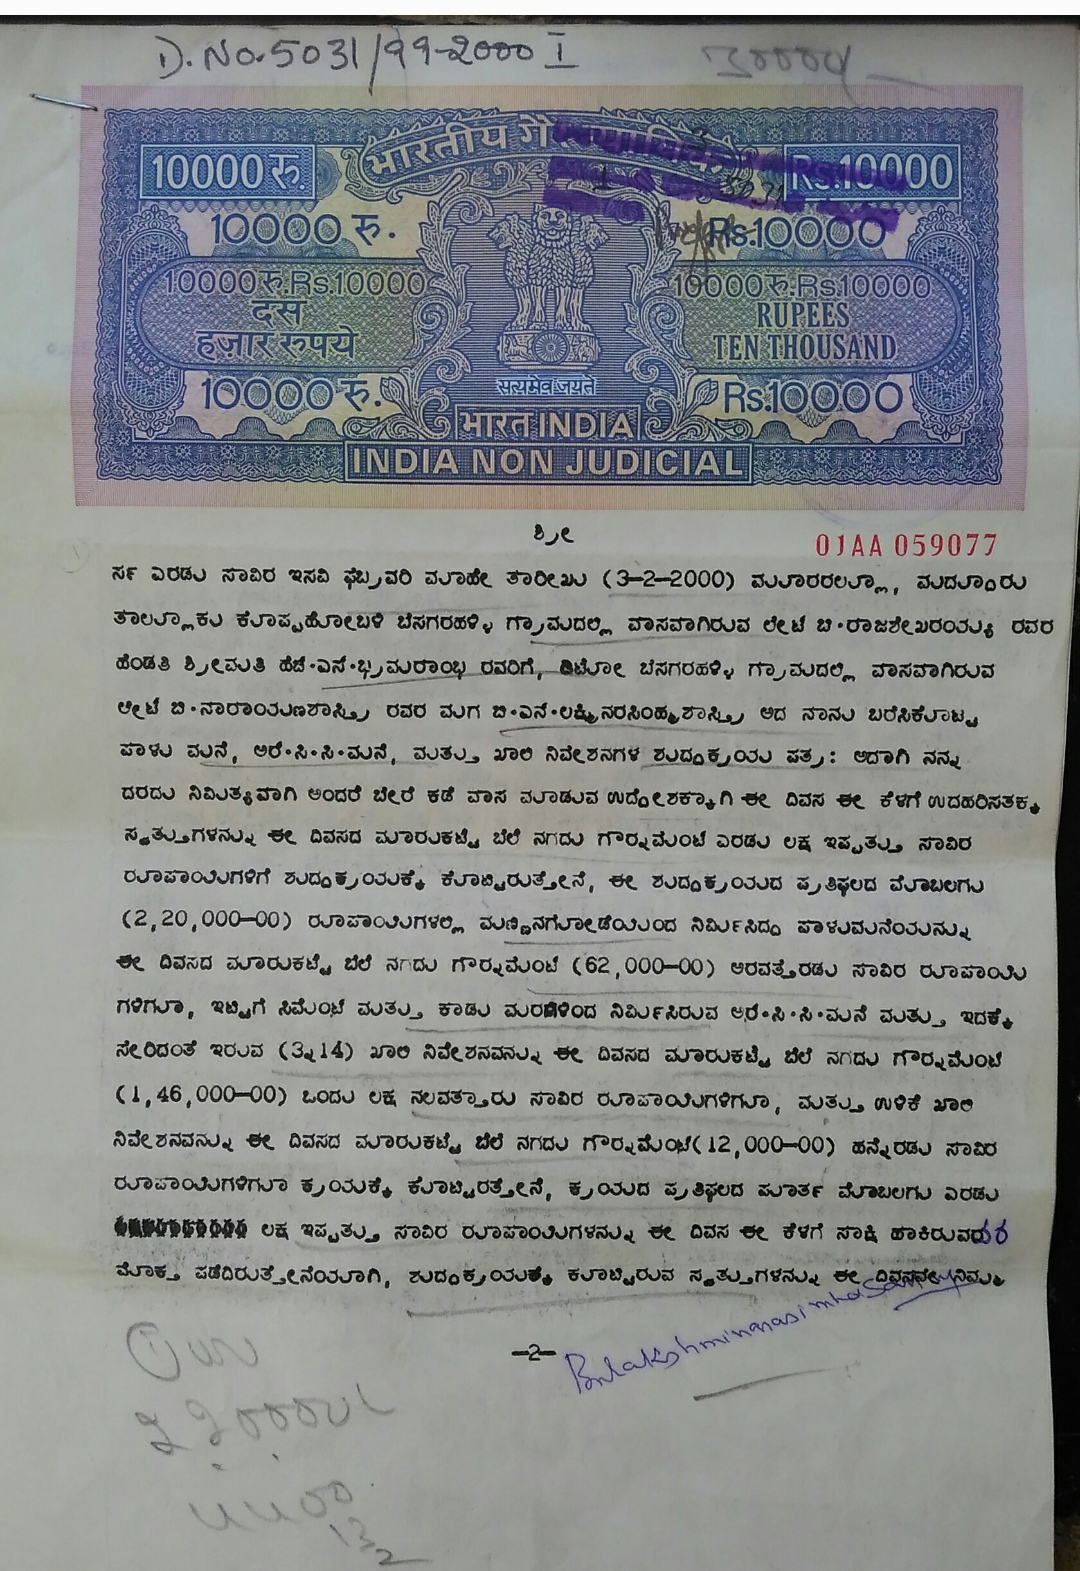 D.No.5031/99-2000 I
भारतीय
10000 रु. Rs.10000
10000 रु. Rs.10000
10000 रु. Rs.10000 10000 रु. Rs.10000
दस RUPEES
हज़ार रुपये TEN THOUSAND
सत्यमेव जयते
10000 रु. Rs.10000
भारत INDIA
INDIA NON JUDICIAL
ಶ್ರೀ
01AA 059077
ಎರಡು ಸಾವಿರ ಇಸವಿ ಫೆಬ್ರವರಿ ಮಾಹೇ ತಾರೀಖು (3-2-2000) ಮದ್ದೂರು
ತಾಲ್ಲೂಕು ಕೊಪ್ಪಹೋಬಳಿ ಬೆಸಗರಹಳ್ಳಿ ಗ್ರಾಮದಲ್ಲಿ ವಾಸವಾಗಿರುವ ಲೇಟ್ ಬಿ.ರಾಜಶೇಖರಯ್ಯ ರವರ
ಹೆಂಡತಿ ಶ್ರೀಮತಿ ಹೆಚ್.ಎಸ್.ಭ್ರಮರಾಂಭ ರವರಿಗೆ, ಡಿಟೋ ಬೆಸಗರಹಳ್ಳಿ ಗ್ರಾಮದಲ್ಲಿ ವಾಸವಾಗಿರುವ
ಲೇಟ್ ಬಿ.ನಾರಾಯಣಶಾಸ್ತ್ರಿ ರವರ ಮಗ ಬಿ.ಎನ್.ಲಕ್ಷ್ಮಿನರಸಿಂಹ್ಮಶಾಸ್ತ್ರಿ ಆದ ನಾನು ಬರೆಸಿಕೊಟ್ಟ
ಪಾಳು ಮನೆ, ಆರ್.ಸಿ.ಸಿ.ಮನೆ, ಮತ್ತು ಖಾಲಿ ನಿವೇಶನಗಳ ಶುದ್ಧಕ್ರಯ ಪತ್ರ: ಅದಾಗಿ ನನ್ನ
ದರದು ನಿಮಿತ್ಯವಾಗಿ ಅಂದರೆ ಬೇರೆ ಕಡೆ ವಾಸ ಮಾಡುವ ಉದ್ದೇಶಕ್ಕಾಗಿ ಈ ದಿವಸ ಈ ಕೆಳಗೆ ಉದಹರಿಸತಕ್ಕ
ಸ್ವತ್ತುಗಳನ್ನು ಈ ದಿವಸದ ಮಾರುಕಟ್ಟೆ ಬೆಲೆ ನಗದು ಗೌರ್ನಮೆಂಟ್ ಎರಡು ಲಕ್ಷ ಇಪ್ಪತ್ತು ಸಾವಿರ
ರೂಪಾಯಿಗಳಿಗೆ ಶುದ್ಧಕ್ರಯಕ್ಕೆ ಕೊಟ್ಟಿರುತ್ತೇನೆ, ಈ ಶುದ್ಧಕ್ರಯದ ಪ್ರತಿಫಲದ ಮೊಬಲಗು
(2,20,000-00) ರೂಪಾಯಿಗಳಲ್ಲಿ ಮಣ್ಣಿನಗೋಡೆಯಿಂದ ನಿರ್ಮಿಸಿದ್ಧ ಪಾಳುಮನೆಯನ್ನು
ಈ ದಿವಸದ ಮಾರುಕಟ್ಟೆ ಬೆಲೆ ನಗದು ಗೌರ್ನಮೆಂಟ್ (62,000-00) ಅರವತ್ತೆರಡು ಸಾವಿರ ರೂಪಾಯಿ
ಗಳಿಗೂ, ಇಟ್ಟಿಗೆ ಸಿಮೆಂಟ್ ಮತ್ತು ಕಾಡು ಮರಗಳಿಂದ ನಿರ್ಮಿಸಿರುವ ಆರ್.ಸಿ.ಸಿ.ಮನೆ ಮತ್ತು ಇದಕ್ಕೆ
ಸೇರಿದಂತೆ ಇರುವ ಖಾಲಿ ನಿವೇಶನವನ್ನು ಈ ದಿವಸದ ಮಾರುಕಟ್ಟೆ ಬೆಲೆ ನಗದು ಗೌರ್ನಮೆಂಟ್
(1,46,000-00) ಒಂದು ಲಕ್ಷ ನಲವತ್ತಾರು ಸಾವಿರ ರೂಪಾಯಿಗಳಿಗೂ, ಮತ್ತು ಉಳಿಕೆ ಖಾಲಿ
ನಿವೇಶನವನ್ನು ಈ ದಿವಸದ ಮಾರುಕಟ್ಟೆ ಬೆಲೆ ನಗದು ಗೌರ್ನಮೆಂಟ್(12,000-00) ಹನ್ನೆರಡು ಸಾವಿರ
ರೂಪಾಯಿಗಳಿಗೂ ಕ್ರಯಕ್ಕೆ ಕೊಟ್ಟಿರತ್ತೇನೆ, ಕ್ರಯದ ಪ್ರತಿಫಲದ ಪೂರ್ತ ಮೊಬಲಗು ಎರಡು
ಲಕ್ಷ ಇಪ್ಪತ್ತು ಸಾವಿರ ರೂಪಾಯಿಗಳನ್ನು ಈ ದಿವಸ ಈ ಕೆಳಗೆ ಸಾಕ್ಷಿ ಹಾಕಿರುವವರ
ಮೊಕ್ತ ಪಡೆದಿರುತ್ತೇನೆಯಾಗಿ, ಶುದ್ಧಕ್ರಯಕ್ಕೆ ಕೊಟ್ಟಿರುವ ಸ್ವತ್ತುಗಳನ್ನು ಈ ದಿವಸವೇ ನಿಮ್ಮ
-2-